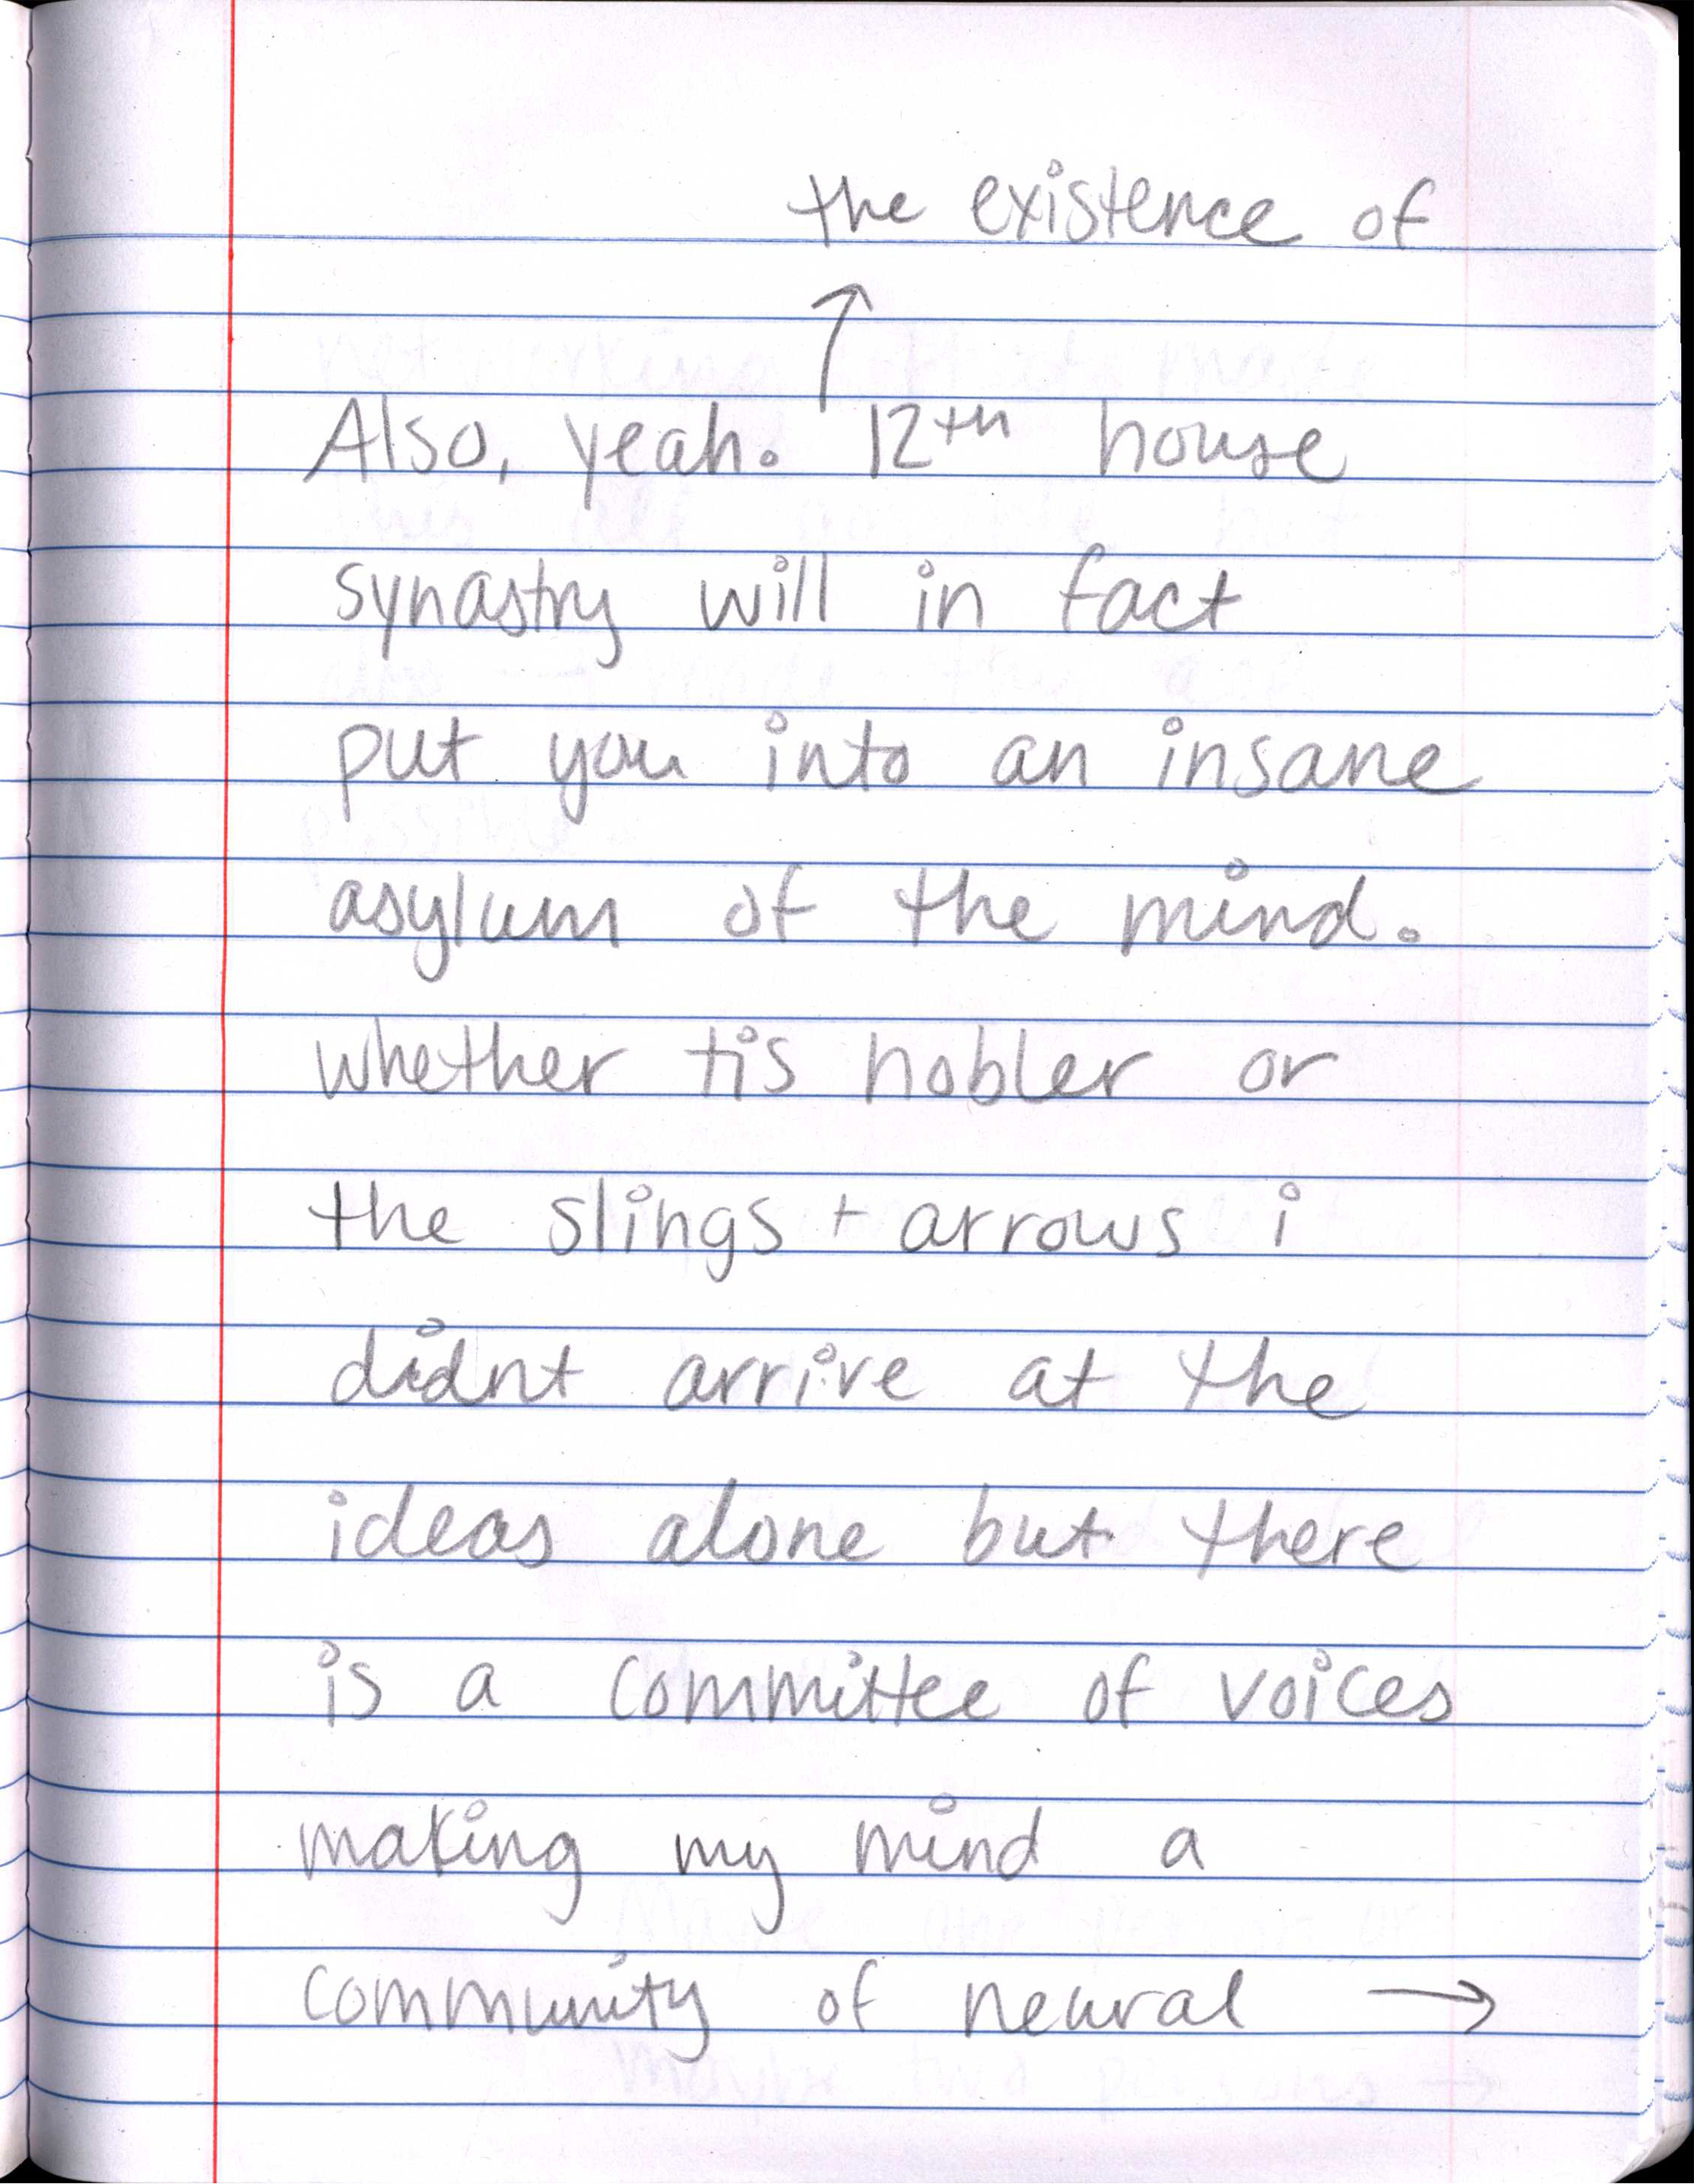 the existence of
↑
Also, yeah. 12th house
synastry will in fact
put you into an insane
asylum of the mind.
whether tis nobler or
the slings + arrows i
didnt arrive at the
ideas alone but there
is a committee of voices
making my mind a
community of neural →